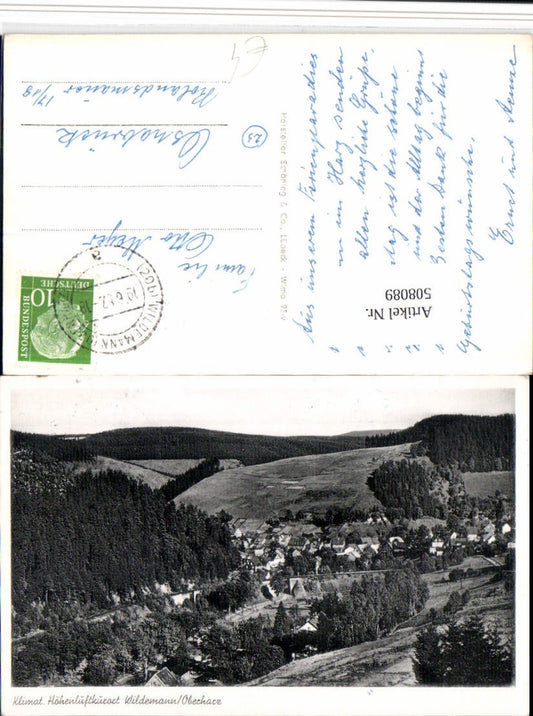 Aus unserem Ferienparadies
im Harz senden
allen herzliche Grüße.
ist die schöne
und der Alltag beginnt
Besten Dank für die
Geburtstagswünsche.
Ernst und
Hersteller Schöning & Co., Lübeck
Artikel Nr.
508089
Familie
Otto Meyer
Osnabrück
17/18
23
DEUTSCHE
BUNDESPOST
10
(20b) WILDEMANN
a
Klimat. Höhenluftkurort Wildemann/Oberharz